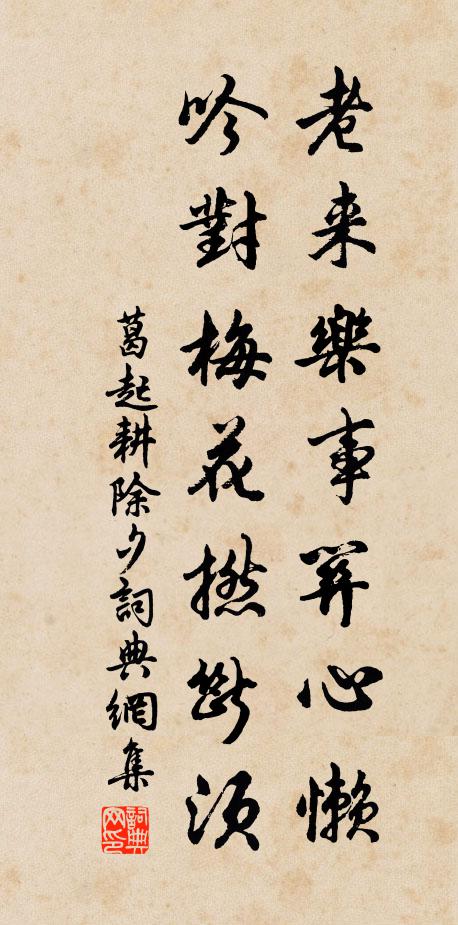 老来樂事關心懶
吟對梅花撚斷須
葛起耕除夕詞典網集
詞典
网印